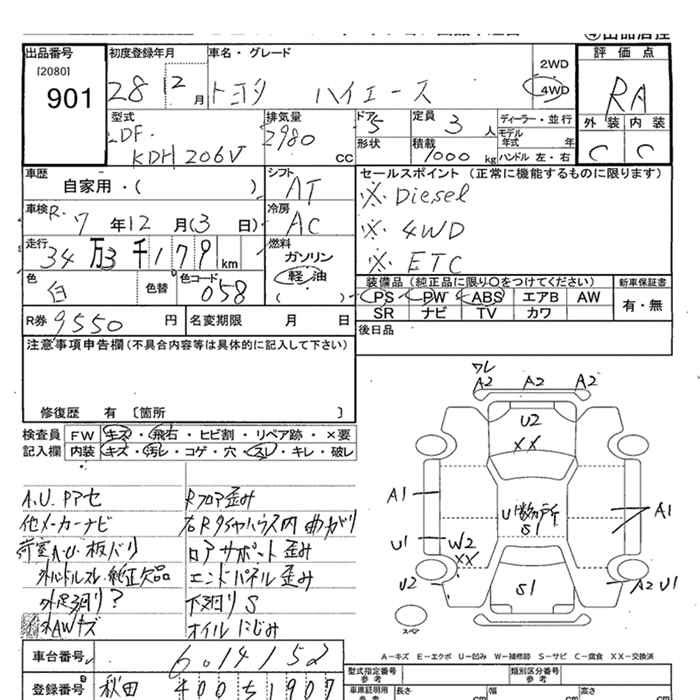 出品番号
[2080]
901
初度登録年月
28 12月
車名・グレード
トヨタ ハイエース
2WD
4WD
評価点
RA
外装 内装
C C
型式
LDF-
KDH206V
排気量
2980
cc
ドア
5
形状
定員
3人
積載
1000 kg
ディーラー・並行
モデル
年式 年
ハンドル 左・右
車歴
自家用・( )
シフト
AT
セールスポイント (正常に機能するものに限ります)
※ Diesel
※ 4WD
※ ETC
車検 R. 7年12月(3日)
冷房
AC
走行
34万3千179km
燃料
ガソリン
軽油
色
白
色替
色コード
058
装備品 (純正品に限り○をつけてください)
PS PW ABS エアB AW
SR ナビ TV カワ
新車保証書
有・無
R券 9550円
名変期限 月 日
後日品
注意事項申告欄 (不具合内容等は具体的に記入して下さい)
修復歴 有 〔箇所 〕
検査員
記入欄
FW キズ・飛石・ヒビ割・リペア跡・×要
内装 キズ・汚レ・コゲ・穴・スレ・キレ・破レ
他メーカーナビ
荷室A.U.板バリ
外ハンドルスレ・純正欠品
外足廻り?
AWキズ
Rフロア歪み
右Rタイヤハウス内曲がり
ロアサポート歪み
エンドパネル歪み
下廻りS
オイルにじみ
ワレ
A2 A2 A2
U2
XX
A1
U1
W2
XX
U2
S1
A1
S1
A2 U1
スペア
A−キズ E−エクボ U−凹み W−補修跡 S−サビ C−腐食 XX−交換済
車台番号
6014152
登録番号
秋田 400 す 1907
型式指定番号
参考
類別区分番号
参考
車庫証明用
参考
長さ cm
幅 cm
高さ cm